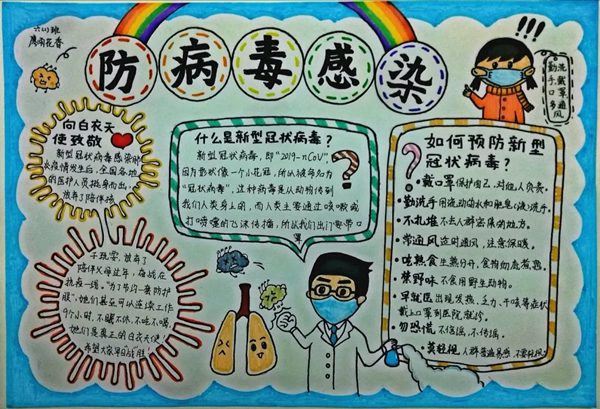 六(4)班
防病毒感染
勤洗手
戴口罩
多通风
向白衣天
使致敬
新型冠状病毒感染肺
炎疫情发生后,全国各地
的医护人员挺身而出,
放弃了陪伴孩
子玩耍,放弃了
陪伴父母过年,奋战在
抗疫一线。"为了节约一套防护
服",她们甚至可以连续工作
9个小时,不睡不休、不吃不喝,
她们是真正的白衣天使!
希望大家早日战胜!
什么是新型冠状病毒?
新型冠状病毒,即"2019-nCoV",
因为形状像一个小花冠,所以被命名为
"冠状病毒",这种病毒是从动物传到
我们人类身上的,而人类主要通过咳嗽或
打喷嚏的飞沫传播,所以我们出门要带口
罩
如何预防新型
冠状病毒?
·戴口罩保护自己,对他人负责。
·勤洗手用流动的水和肥皂(液)洗手。
·不扎堆不去人群密集的地方。
·常通风适时通风,注意保暖。
·吃熟食生熟分开,食物彻底煮熟。
·禁野味不食用野生动物。
·早就医出现发热、乏力、干咳等症状
戴上口罩到医院就诊。
·勿恐慌不信谣、不传谣。
·莫轻视人群普遍易感,不要轻视